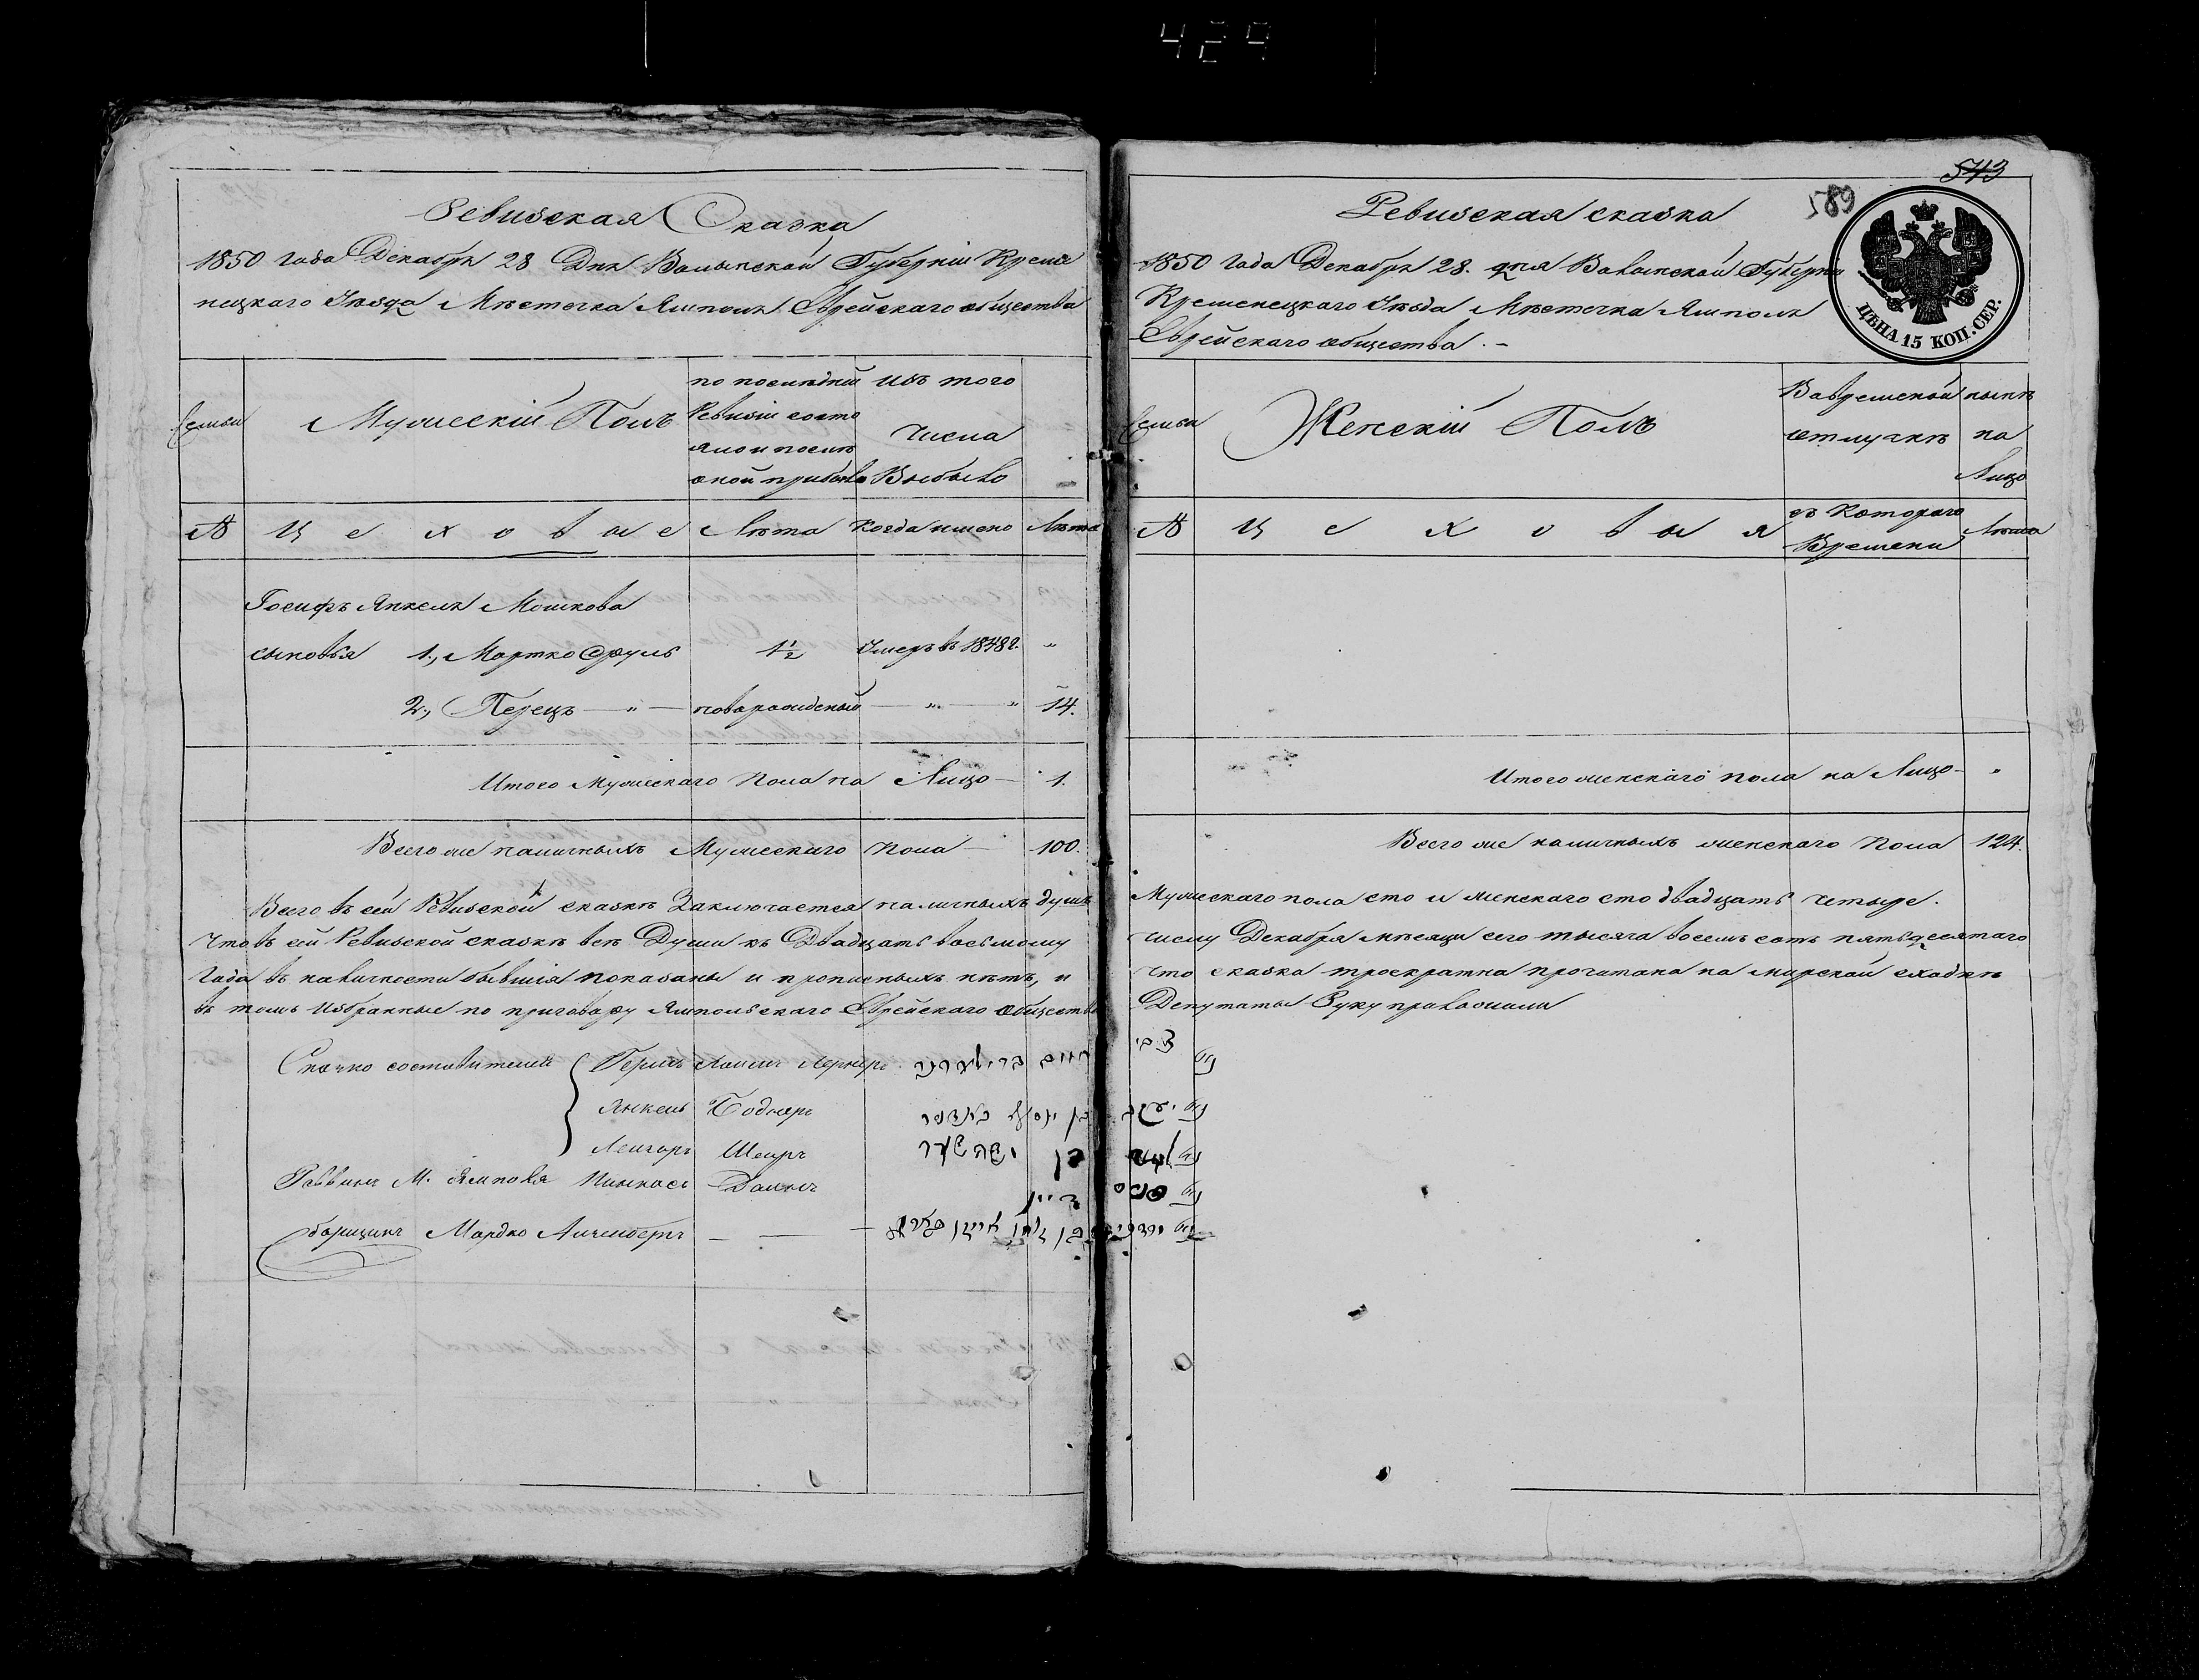 429
Ревизская Сказка
1850 года Декабря 28 Дня Волынской Губерніи Креме
нецкаго Уѣзда Мѣстечка Ямполя Еврейскаго общества
Семьи
Мужескій Полъ
по послѣдней
Ревизіи состо
яло и послѣ
оной прибыло
изъ того
числа
Выбыло
№
Ц е х о в ы е
Лѣта
Когда имено
Лѣта
Іосифъ Янкеля Мошкова
сыновья 1., Мортко Сруль 1½ Умеръ въ 1848 г. "
2., Перецъ — " — новорожденый — " — " 14.
Итого Мужескаго Пола на Лицо — 1.
Всего же наличныхъ Мужескаго Пола — 100.
Всего въ сей Ревизской сказкѣ Заключается наличныхъ душъ
Что въ сей Ревизской сказкѣ всѣ Души къ Двадцать восьмому
Года въ наличности бывшія показаны и прописныхъ нѣтъ, и
въ томъ Избранные по приговору Ямпольскаго Еврейскаго общества
составители
Янкель Боднеръ
Раввинъ М. Ямполя Пинкасъ Даинъ
Мардко
543
589
Ревизская сказка
1850 Года Декабря 28. дня Волынской Губерніи
Кременецкаго Уѣзда Мѣстечка Ямполя
Еврейскаго общества. —
ЦѢНА 15 КОП. СЕР.
Семьи
Женскій Полъ
Вовремѣной
отлучкѣ
нынѣ
на
Лицо
№
Ц е х о в ы я
съ Котораго
Времени
Лѣта
Итого женскаго пола на Лицо — "
Всего же наличныхъ женскаго Пола 124.
Мужескаго пола сто и женскаго сто двадцать четыре.
числу Декабря мѣсяца сего тысяча восемь сотъ пятьдесятаго
Что сказка троекратна прочитана на мирской сходкѣ
Депутаты Руку приложили